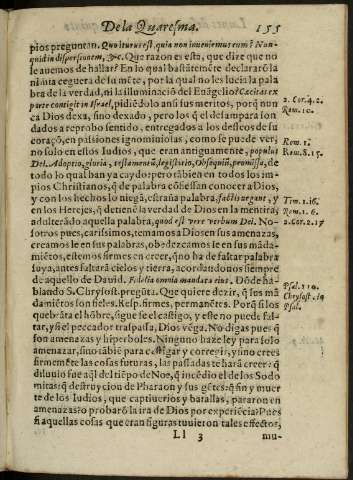 De la Quaresma. 155
pios preguntan. Quo iturus est, quia non inueniemus eum? Nun-
quid in dispersionem, &c. Que razon es esta, que dize que no
le auemos de hallar? En lo qual bastātemēte declararō la
ni mta ceguera de su mēte, por la qual no les lucia la pala
bra de la verdad, ni la illuminació del Euāgelio? Cæcitas ex
parte contigit in Israel, pidiēdolo ansi sus meritos, porq̃ nun
ca Dios dexa, sino dexado, pero los q̃ el desampara son
dados a reprobo sentido, entregados a los desseos de su
coraçō, en passiones ignominiosas, como se puede ver,
no solo en estos Iudios, que eran antiguamente, populus
Dei, Adoptio, gloria, testamentū, legislatio, Obsequiū, promissa, de
todo lo qual ban ya caydo: pero tābien en todos los im
pios Christianos, q̃ de palabra cōfiessan conocer a Dios,
y con los hechos lo niegā, estraña palabra, factis negant, y
en los Herejes, q̃ detienē la verdad de Dios en la mentira,
adulterādo aquella palabra, quod est vere verbum Dei. No-
sotros pues, carissimos, temamos a Dios en sus amenazas,
creamos le en sus palabras, obedezcamos le en sus māda-
miētos, estemos firmes en creer, q̃ no ha de faltar palabra
suya, antes faltarā cielos y tierra, acordandonos siempre
de aquello de Dauid. Fidelia omnia mandata eius, Dōde ha-
blando S. Chrysost. pregūta. Que quiere dezir, q̃ sus mā
damiētos son fieles. Resp. firmes, permanētes. Porq̃ si los
quebrāta el hōbre, sigue se el castigo, y este no puede fal-
tar, y si el peccador traspassa, Dios vēga. No digas pues q̃
son amenazas y hiperboles. Ninguno haze ley para solo
amenazar, sino tābiē para castigar y corregir, y si no crees
firmemēte las cosas futuras, las passadas te harā creer: q̃
diluuio fue aq̃l del tiēpo de Noe, q̃ incēdio el de los Sodo
mitas: q̃ destruycion de Pharaon y sus gētes: q̃ fin y muer
te de los Iudios, que captiuerios y batallas, pararon en
amenazas? o probarō la ira de Dios por experiēcia? Pues
si aquellas cosas que eran figuras tuuieron tales effectos,
Ll 3 mu-
2. Cor. 4. 2.
Rom. 10.
Rom. 1.
Rom. 8. 15.
Tim. 1. 16.
Rom. 1. 6.
2. Cor. 2. 17
Psal. 110.
Chrysost. in
Psal.